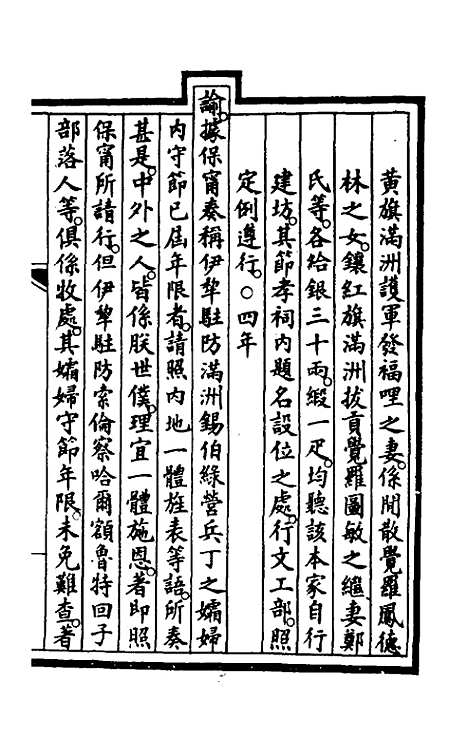 黃旗滿洲護軍發福哩之妻係閒散覺羅鳳德
林之女鑲紅旗滿洲拔貢覺羅圖敏之繼妻鄭
氏等各給銀三十兩緞一疋均聽該本家自行
建坊其節孝祠內題名設位之處行文工部照
定例遵行○四年
諭據保甯奏稱伊犂駐防滿洲錫伯綠營兵丁之孀婦
內守節已屆年限者請照內地一體旌表等語所奏
甚是中外之人皆係朕世僕理宜一體施恩著即照
保甯所請行但伊犂駐防索倫察哈爾額魯特回子
部落人等俱係牧處其孀婦守節年限未免難查著